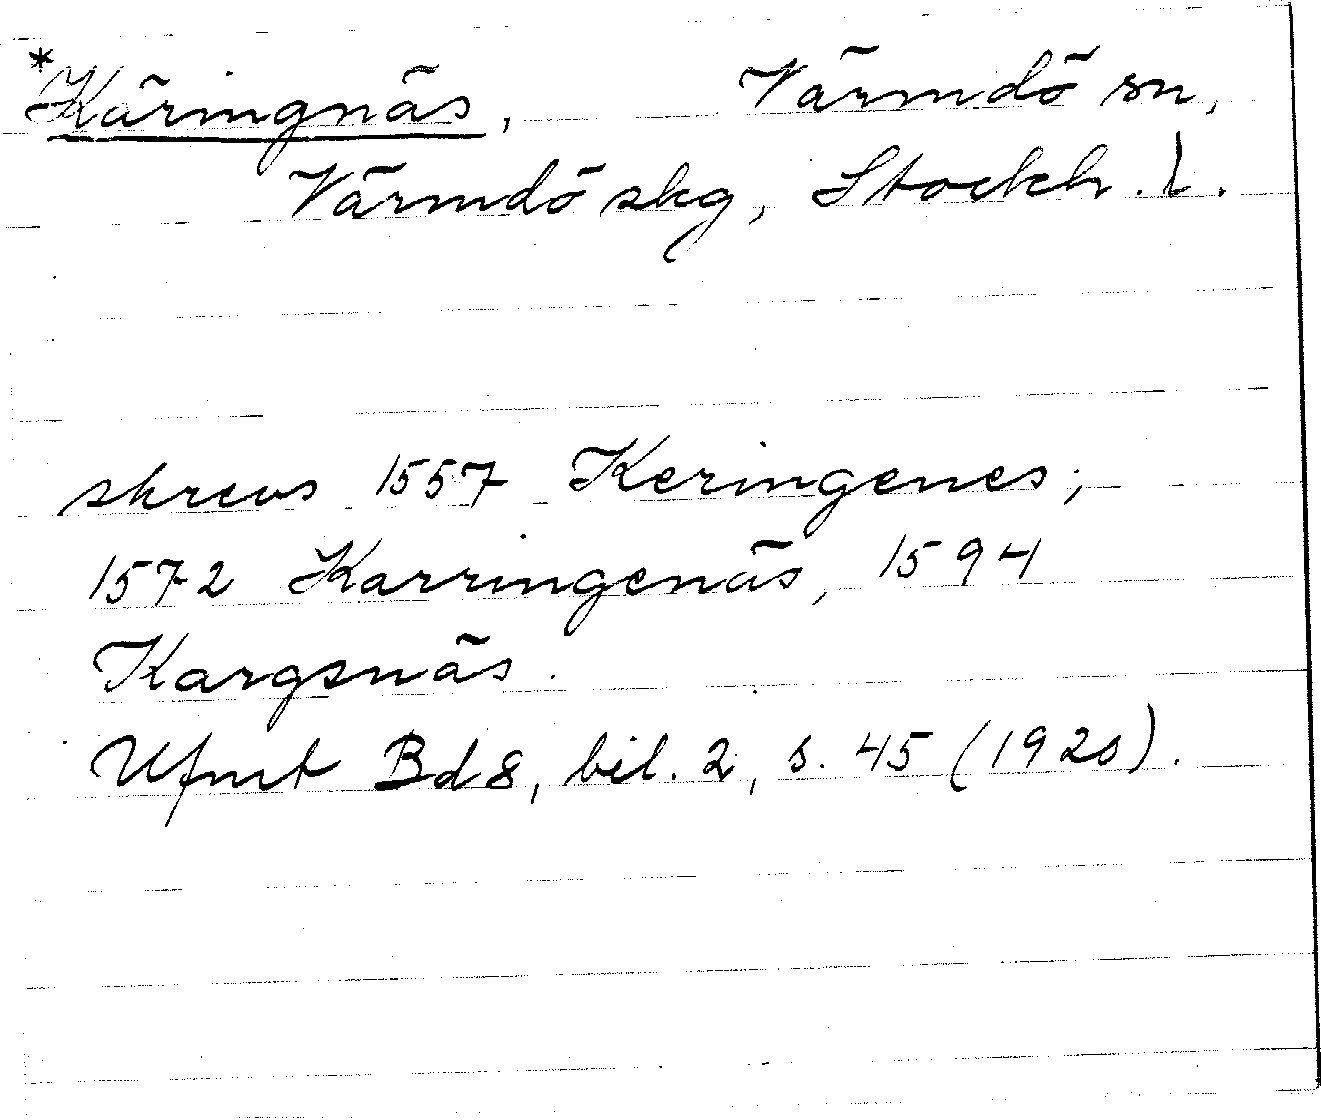 *Käringnäs, Värmdö sn,
Värmdö skg, Stockh. l.
skrevs 1557 Keringenes;
1572 Karringenäs, 1594
Kargsnäs.
Ufmt Bd 8, bil. 2, s. 45 (1920).